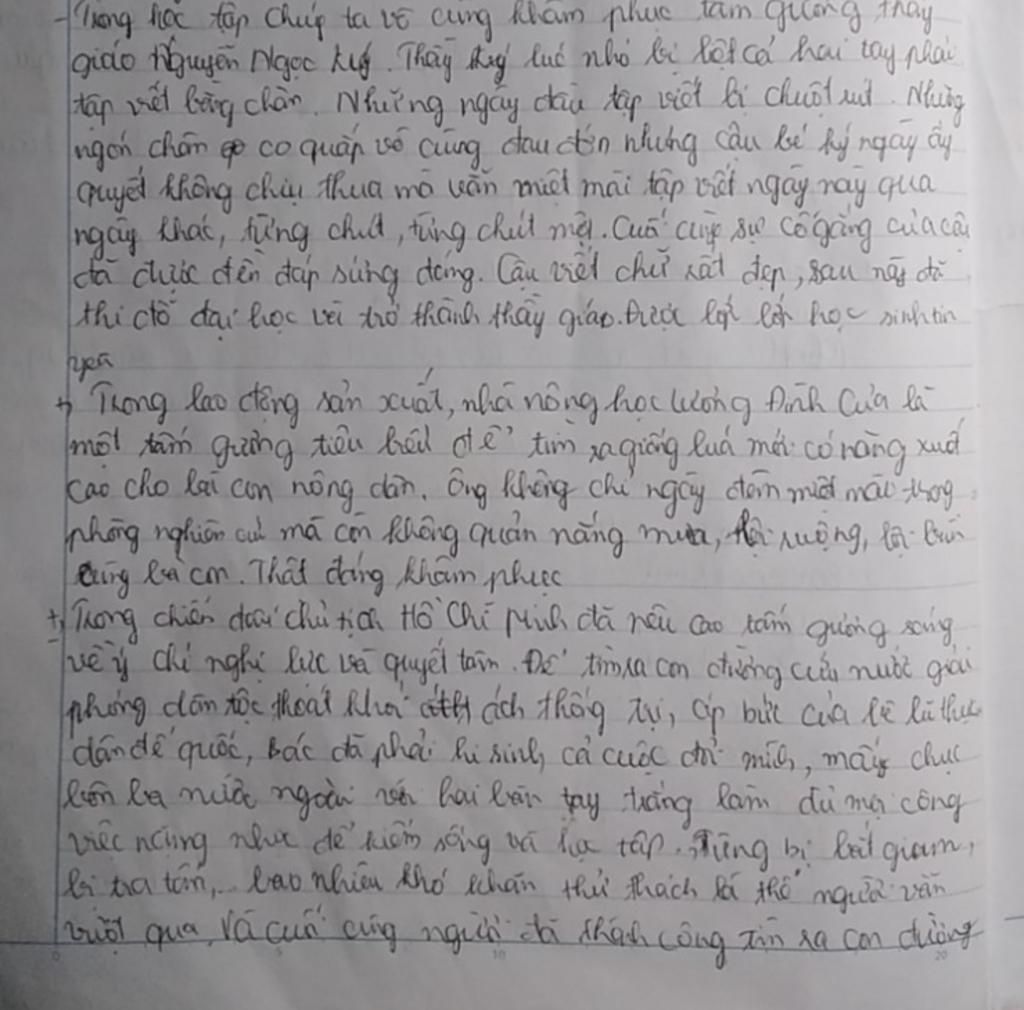 - Trong học tập chúp ta vô cùng khâm phục tấm gương thầy
giáo Nguyễn Ngọc Ký. Thầy Ký lúc nhỏ bị liệt cả hai tay phải
tập viết bằng chân. Những ngày đầu tập viết bị chuột rút. Những
ngón chân co quắp vô cùng đau đớn nhưng cậu bé Ký ngày ấy
quyết không chịu thua mà vẫn miệt mài tập viết ngày này qua
ngày khác, từng chút, từng chút một. Cuối cùng sự cố gắng của cậu
đã được đền đáp xứng đáng. Cậu viết chữ rất đẹp, sau này đã
thi đỗ đại học và trở thành thầy giáo. Được lớp lớp học sinh tin
yêu
+, Trong lao động sản xuất, nhà nông học Lương Đình Của là
một tấm gương tiêu biểu để tìm ra giống lúa mới có năng xuất
cao cho bà con nông dân. Ông không chỉ ngày đêm miệt mài trong
phòng nghiên cứu mà còn không quản nắng mưa, lội ruộng, lội bùn
cùng bà con. Thật đáng khâm phục
+, Trong chiến đấu chủ tịch Hồ Chí Minh đã nêu cao tấm gương sáng
về ý chí nghị lực và quyết tâm. Để tìm ra con đường cứu nước giải
phóng dân tộc thoát khỏi ách thống trị, áp bức của bè lũ thực
dân đế quốc, Bác đã phải hi sinh, cả cuộc đời mình, mấy chục
bôn ba nước ngoài với hai bàn tay trắng làm đủ mọi công
việc nặng nhọc để kiếm sống và học tập. Từng bị bắt giam,
bị tra tấn,.. bao nhiêu khó khăn thử thách là thế người vẫn
vượt qua. Và cuối cùng người đã thành công tìm ra con đường